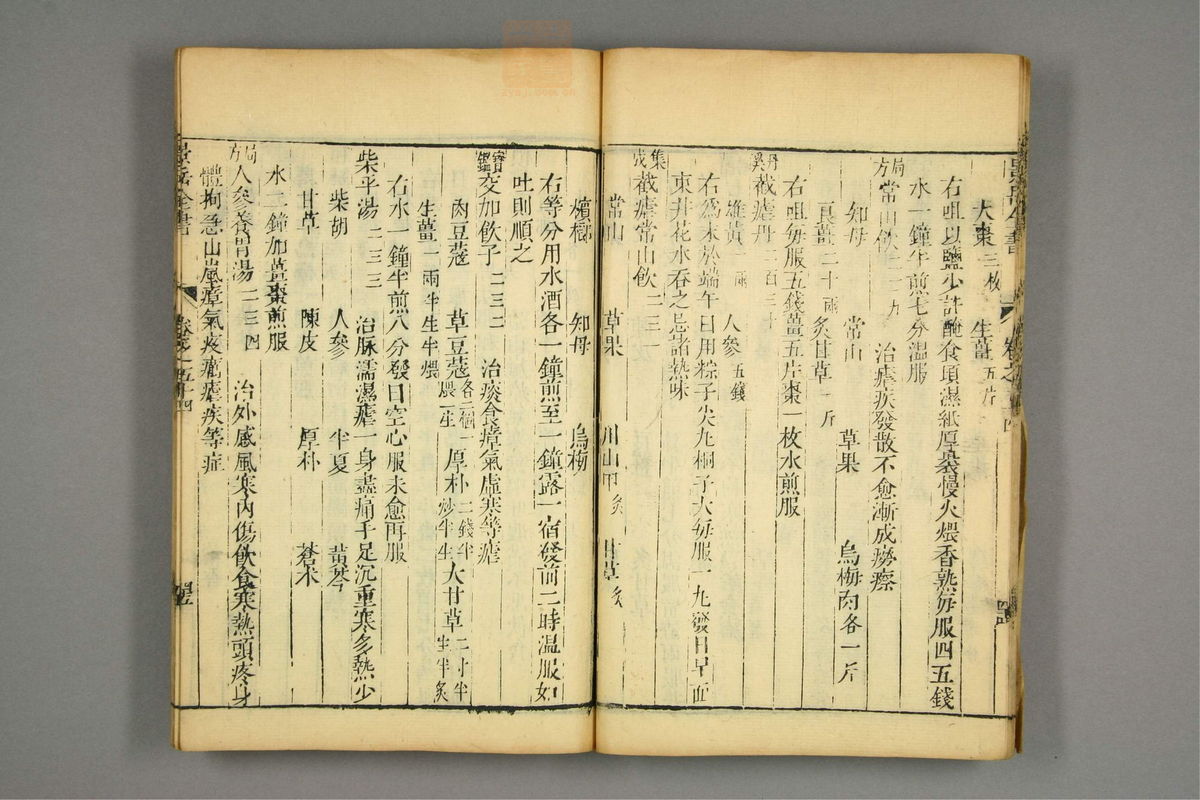 大棗三枚 生薑五片
右咀以鹽少許醃食頃濕紙厚裹慢火煨香熟每服四五錢
水一鐘半煎七分溫服
局方常山飲二二九 治瘧疾發散不愈漸成癆瘵
知母 常山 草果 烏梅肉各一斤
良薑二十兩 炙甘草一斤
右咀每服五錢薑五片棗一枚水煎服
丹溪截瘧丹二百三十
雄黃一兩 人參五錢
右為末於端午日用粽子尖丸桐子大每服一丸發日早面
東井花水吞之忌諸熱味
集成截瘧常山飲二三一
常山 草果 川山甲炙 甘草炙
檳榔 知母 烏梅
右等分用水酒各一鐘煎至一鐘露一宿發前二時溫服如
吐則順之
寶鑑交加飲子二三二 治痰食瘴氣虛寒等瘧
肉豆蔻 草豆蔻各二個一煨一生 厚朴二錢半炒半生 大甘草二寸半生半炙
生薑一兩半生半煨
右水一鐘半煎八分發日空心服未愈再服
柴平湯二三三 治脈濡濕瘧一身盡痛手足沉重寒多熱少
柴胡 人參 半夏 黃芩
甘草 陳皮 厚朴 蒼朮
水二鐘加薑棗煎服
局方人參養胃湯二三四 治外感風寒內傷飲食寒熱頭疼身
體拘急山嵐瘴氣疫癘瘧疾等症
景岳全書
卷之五十四